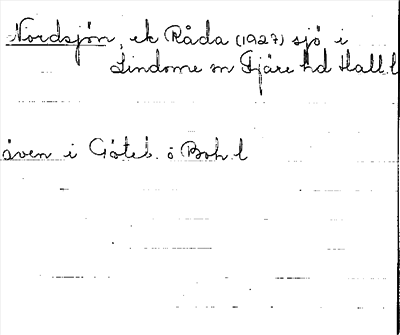 Nordsjön, ek Råda (1927) sjö i
Lindome sn Fjäre hd Hall. l
även i Göteb. o Boh. l